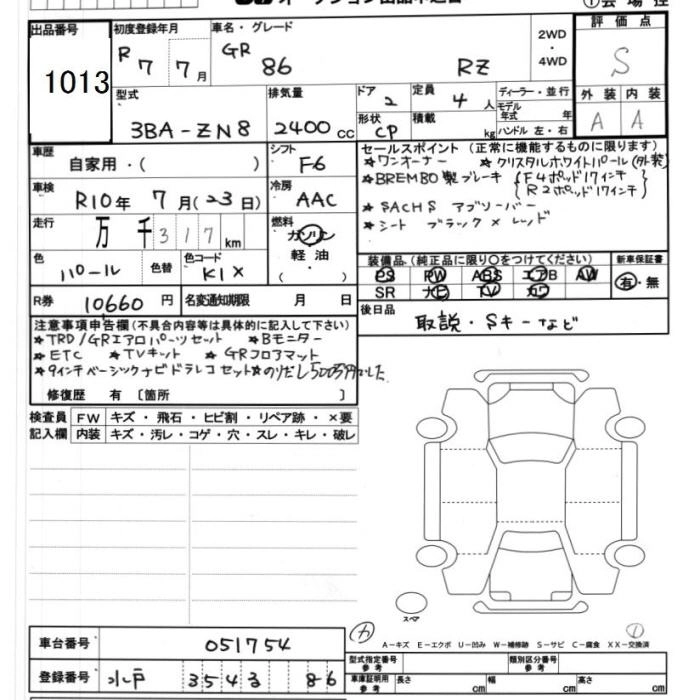 出品番号 初度登録年月 車名・グレード 2WD・4WD 評価点
1013 R 7 7月 GR 86 RZ S
型式 排気量 ドア 2 定員 4人 ディーラー・並行 外装 内装
3BA-ZN8 2400cc 形状 CP 積載 kg モデル年式 年 A A
ハンドル 左・右
車歴 自家用・( ) シフト F6 セールスポイント (正常に機能するものに限ります)
★ワンオーナー ★クリスタルホワイトパール(外装)
車検 R10年 7月(23日) 冷房 AAC ★BREMBO製ブレーキ {F4ポッド17インチ
R2ポッド17インチ}
走行 万 千 317km 燃料 ガソリン・軽油・( ) ★SACHS アブソーバー
★シート ブラック×レッド
色 パール 色替 色コード K1X
装備品 (純正品に限り○をつけてください) 新車保証書
PS PW ABS エアB AW 有・無
SR ナビ TV カワ
R券 10660円 名変通知期限 月 日
後日品 取説・Sキーなど
注意事項申告欄 (不具合内容等は具体的に記入して下さい)
★TRD/GRエアロパーツセット ★Bモニター
★ETC ★TVキット ★GRフロアマット
★9インチベーシックナビドラレコセット
修復歴 有 [箇所 ]
検査員 FW キズ・飛石・ヒビ割・リペア跡・×要
記入欄 内装 キズ・汚レ・コゲ・穴・スレ・キレ・破レ
スペア
A-キズ E-エクボ U-凹み W-補修跡 S-サビ C-腐食 XX-交換済
車台番号 051754
型式指定番号 参考 類別区分番号 参考
登録番号 水戸 3543 86
車庫証明用 参考 長さ cm 幅 cm 高さ cm